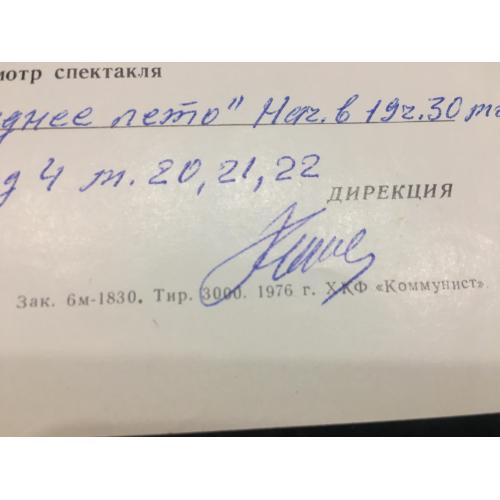 мотр спектакля
днее лето" Нач. в 19ч.30 м
д 4 м. 20, 21, 22
ДИРЕКЦИЯ
Зак. 6м-1830. Тир. 3000. 1976 г. ХКФ «Коммунист».